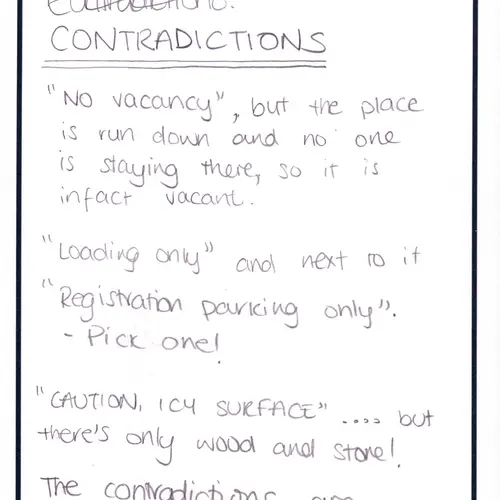 CONTRADICTIONS
"No vacancy", but the place
is run down and no one
is staying there, so it is
infact vacant.
"Loading only" and next to it
"Registration parking only".
- Pick one!
"CAUTION, ICY SURFACE" .... but
there's only wood and stone!
The contradictions